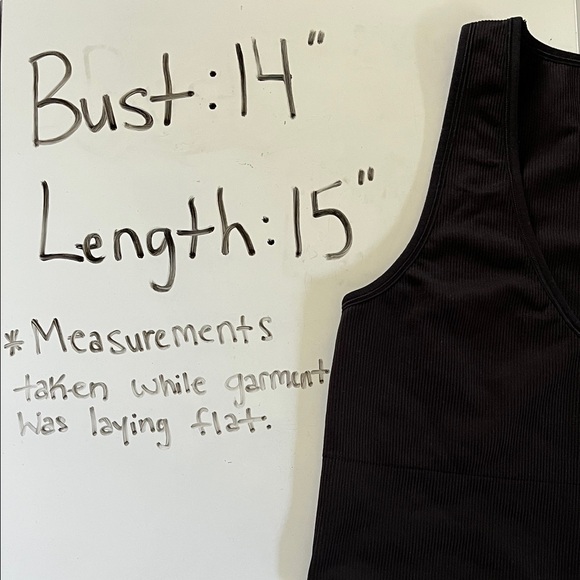 Bust: 14"
Length: 15"
* Measurements
taken while garment
was laying flat.